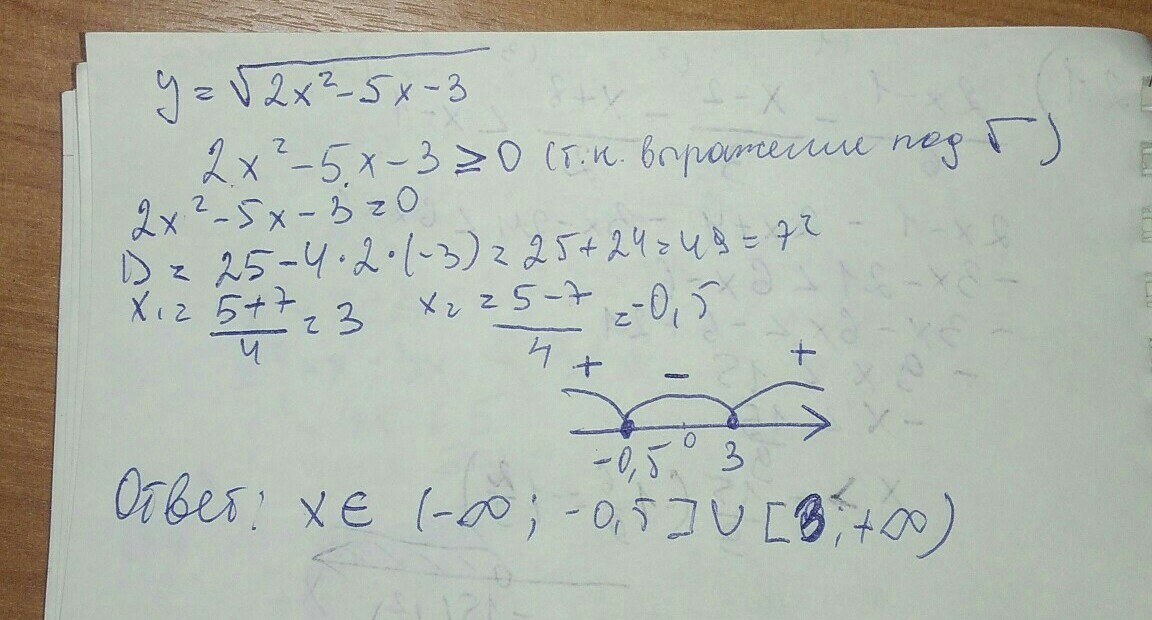 y = √2x² - 5x - 3
2x² - 5x - 3 ≥ 0 (т.к. выражение под √)
2x² - 5x - 3 = 0
D = 25 - 4 · 2 · (-3) = 25 + 24 = 49 = 7²
x₁ = 5+7/4 = 3 x₂ = 5-7/4 = -0,5
+ - +
-0,5 0 3
Ответ: x ∈ (-∞; -0,5] ∪ [3; +∞)